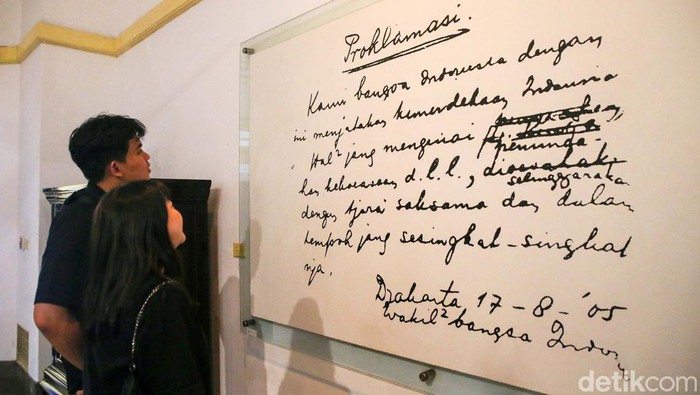 Proklamasi.
Kami bangsa Indonesia dengan
ini menjatakan kemerdekaan Indonesia
Hal² jang mengenai
peminda-
han kekoeasaan d.l.l., dioesahakan
diselenggarakan
dengan tjara saksama dan dalam
tempoh jang sesingkat-singkat
nja.
Djakarta 17 - 8 - '05
Wakil² bangsa Indones
detikcom